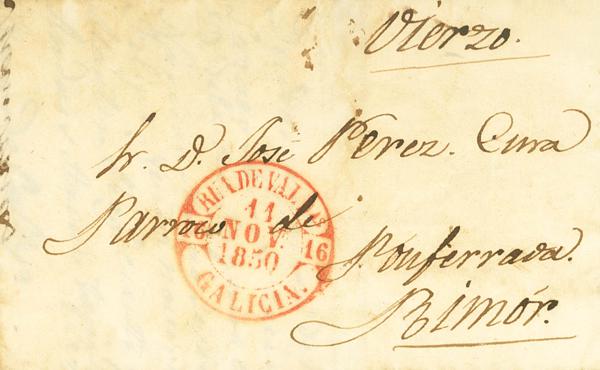 Vierzo.
Sr. D. José Perez. Cura
Parroco de
Ponferrada.
Rimór.
RUA DE VALD
11
NOV.
1850
16
16
GALICIA.